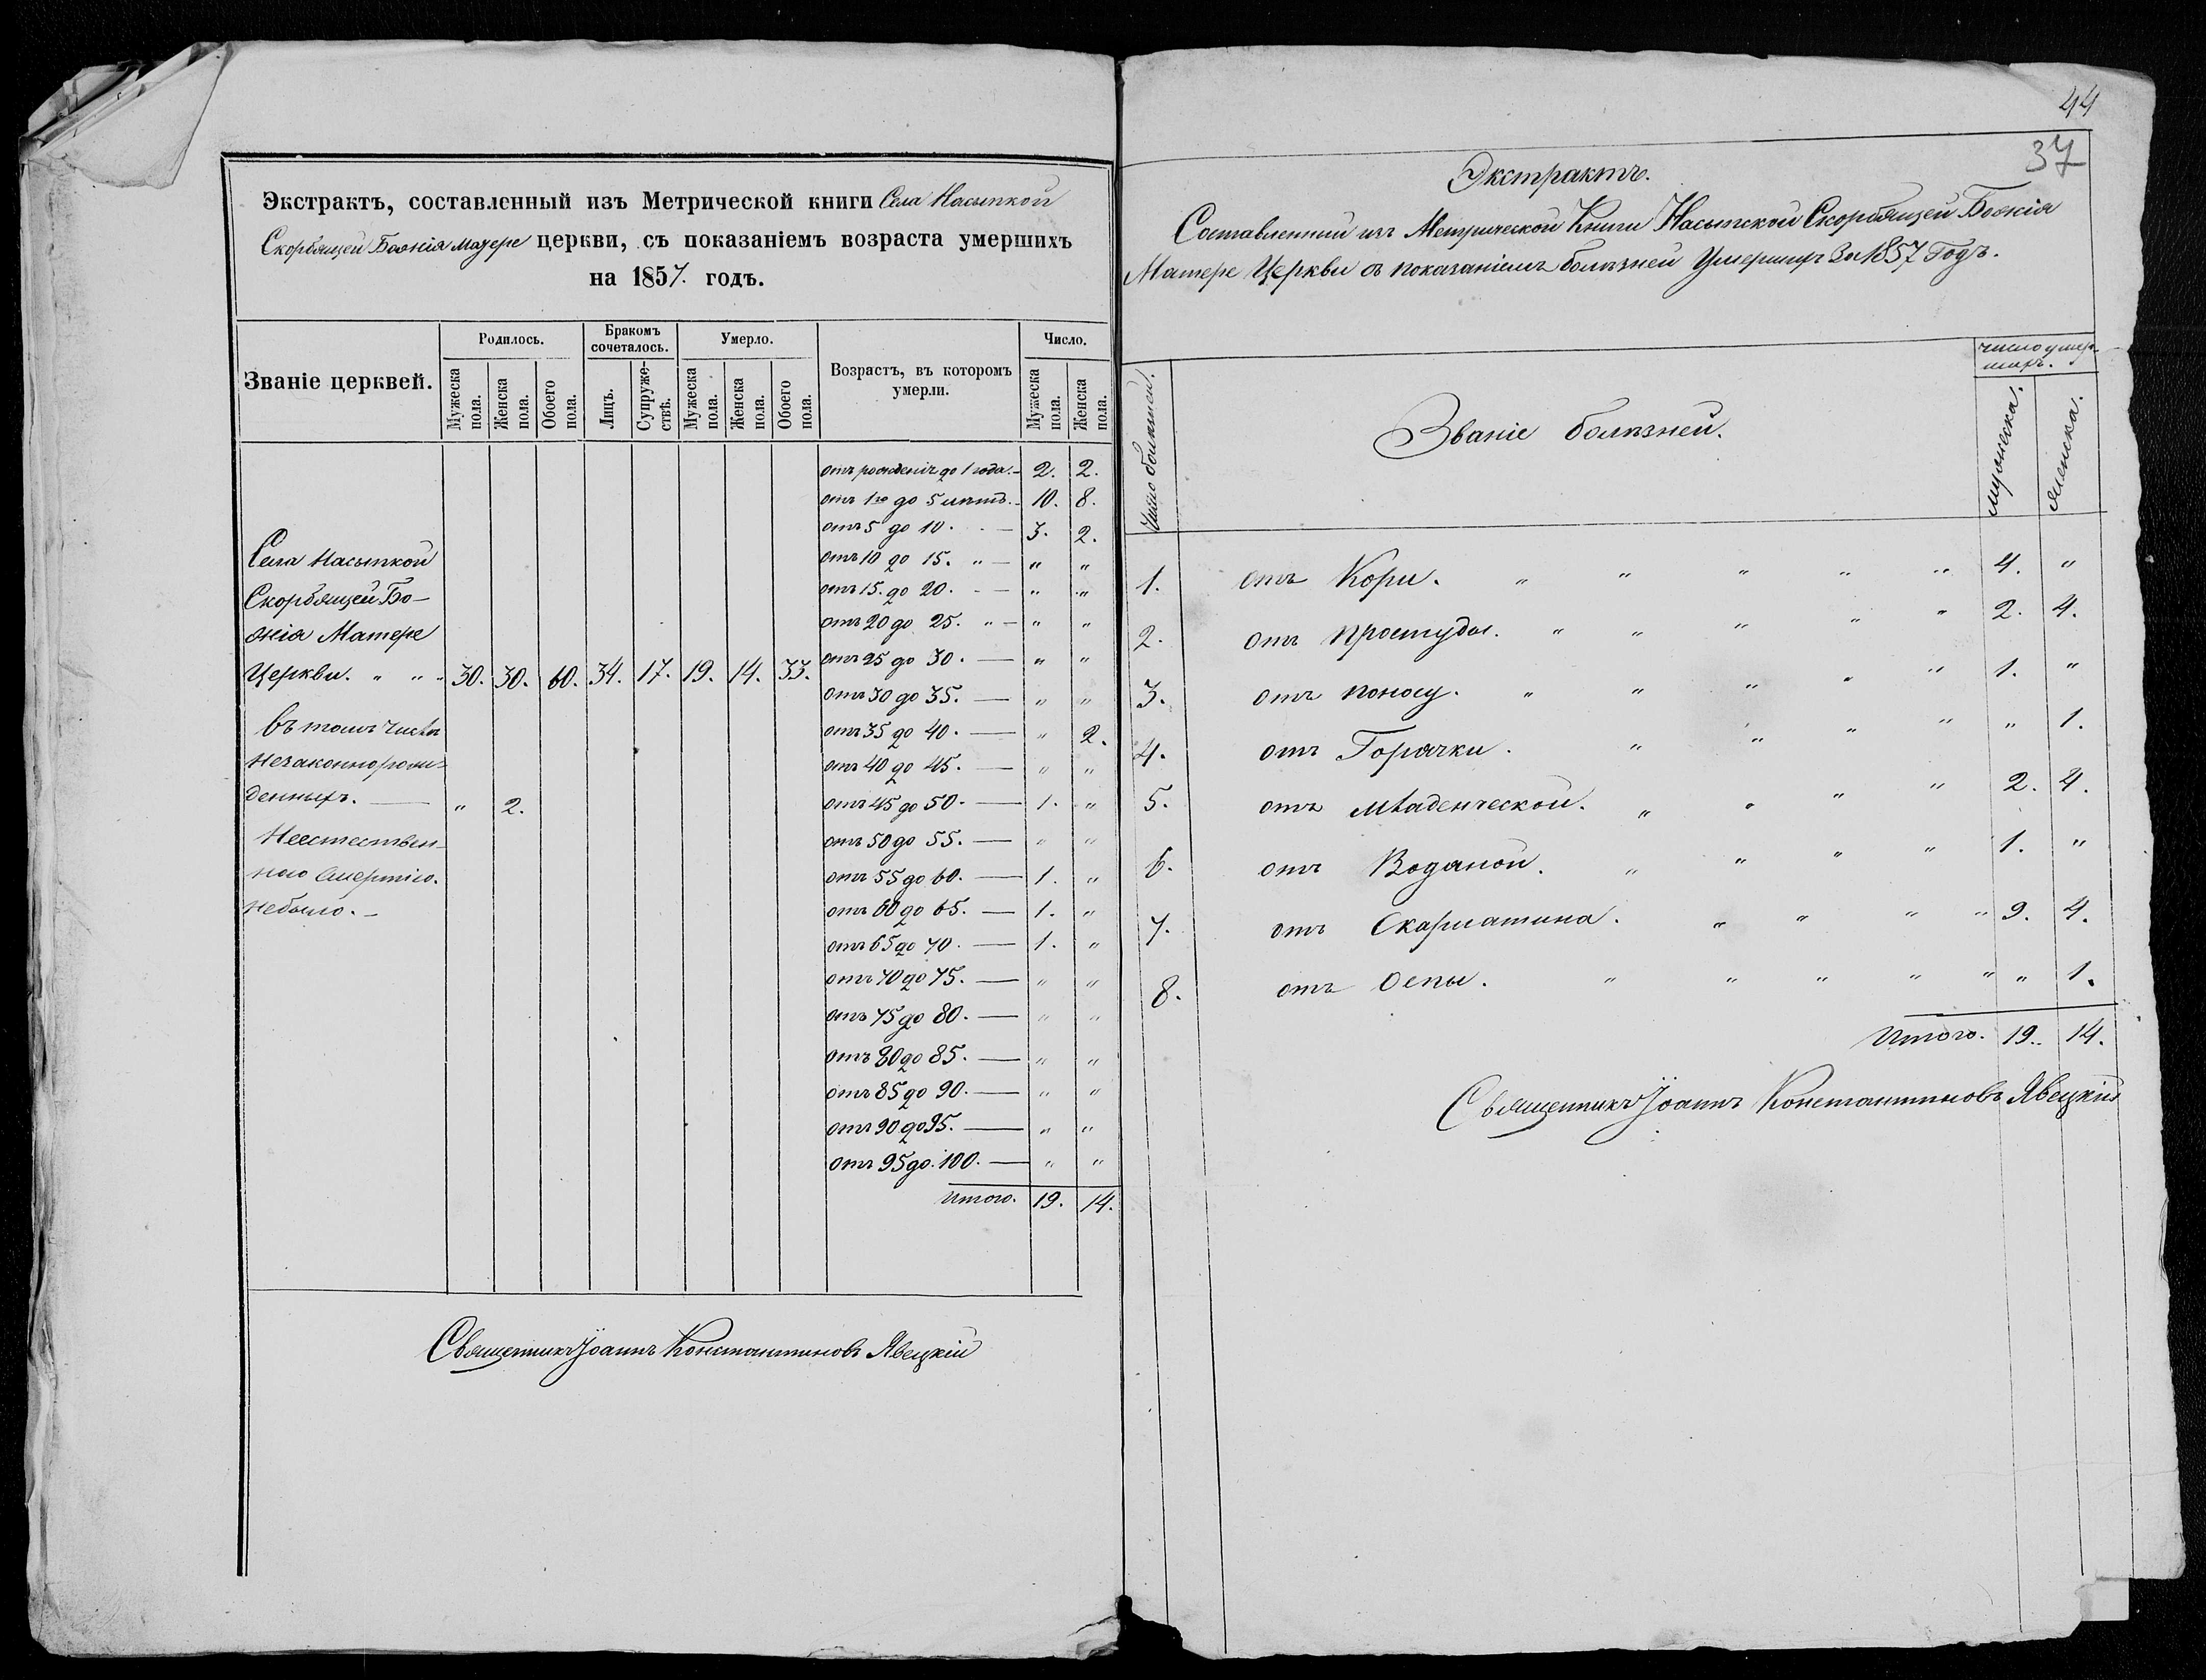 Экстрактъ, составленный изъ Метрической книги Села Насыпкой
Скорбящей Божія Матере церкви, съ показаніемъ возраста умершихъ
на 1857. годъ.
Званіе церквей.
Родилось.
Бракомъ сочеталось.
Умерло.
Возрастъ, въ которомъ умерли.
Число.
Мужеска пола.
Женска пола.
Обоего пола.
Лицъ.
Супружествѣ.
Мужеска пола.
Женска пола.
Обоего пола.
Мужеска пола.
Женска пола.
отъ рожденія до 1 года. — 2. 2.
отъ 1го до 5 лѣтъ. — 10. 8.
отъ 5 до 10. — 3. 2.
отъ 10 до 15. „ — „ „
отъ 15. до 20. — „ „
отъ 20 до 25. „ — „ „
отъ 25 до 30. — „ „
отъ 30 до 35. — „ „
отъ 35 до 40. — „ 2.
отъ 40 до 45. — „ „
отъ 45 до 50. — 1. „
отъ 50 до 55. — „ „
отъ 55 до 60. — 1. „
отъ 60 до 65. — 1. „
отъ 65 до 70. — 1. „
отъ 70 до 75. — „ „
отъ 75 до 80. — „ „
отъ 80 до 85. — „ „
отъ 85 до 90. — „ „
отъ 90 до 95. — „ „
отъ 95 до 100. — „ „
Итого. 19. 14.
Села Насыпкой
Скорбящей Бо-
жія Матере
Церкви. „ „ „ 30. 30. 60. 34. 17. 19. 14. 33.
въ томъ числѣ
незаконнорож-
денныхъ. — „ 2.
Неестествен-
ною смертію.
небыло. —
Священникъ Іоаннъ Константиновъ Явецкій
44
37
Экстрактъ.
Составленный изъ Метрической Книги Насыпской Скорбящей Божія
Матере Церкви съ показаніемъ болѣзней Умершихъ За 1857 Годъ.
Число болѣзней.
Званіе болѣзней.
число умер-
шихъ.
мужеска.
женска.
1. отъ Кори. „ „ „ „ „ 4. „
2. отъ простуды. „ „ „ „ „ 2. 4.
3. отъ поносу. „ „ „ „ „ 1. „
4. отъ Горячки. „ „ „ „ „ 1.
5. отъ младенческой. „ „ „ „ 2. 4.
6. отъ Водяной. „ „ „ „ 1. „
7. отъ Скарлатина. „ „ „ „ 9. 4.
8. отъ оспы. „ „ „ „ „ „ 1.
Итого. 19. 14.
Священникъ Іоаннъ Константиновъ Явецкій